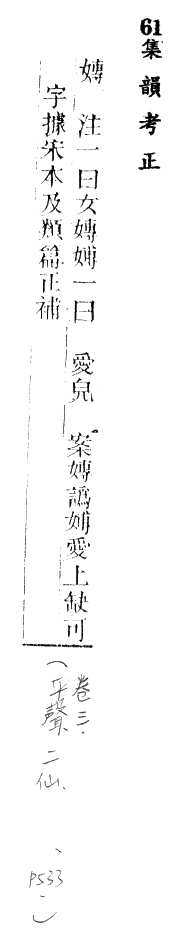 61集韻考正
嫥 注一曰女嫥嫥一曰 愛兒 案嫥譌娏愛上缺可
字據宋本及類篇正補
(卷三.
平聲、二仙、
P533)